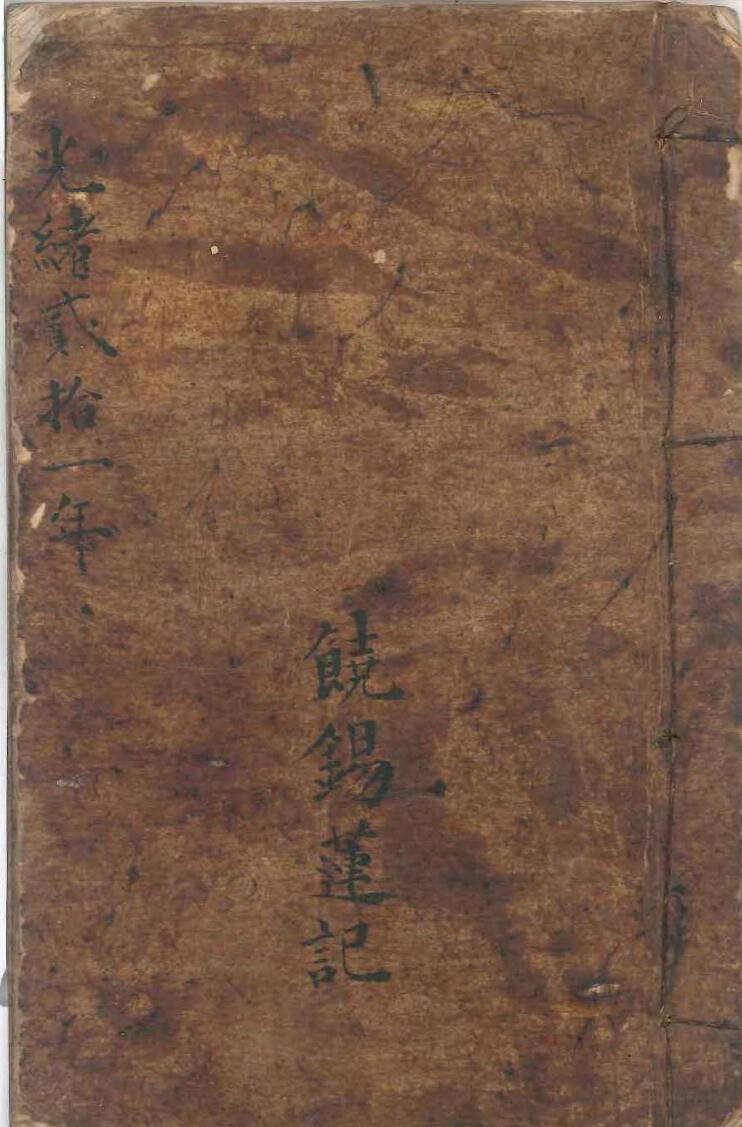 饒錫蓮記
光緒貳拾一年